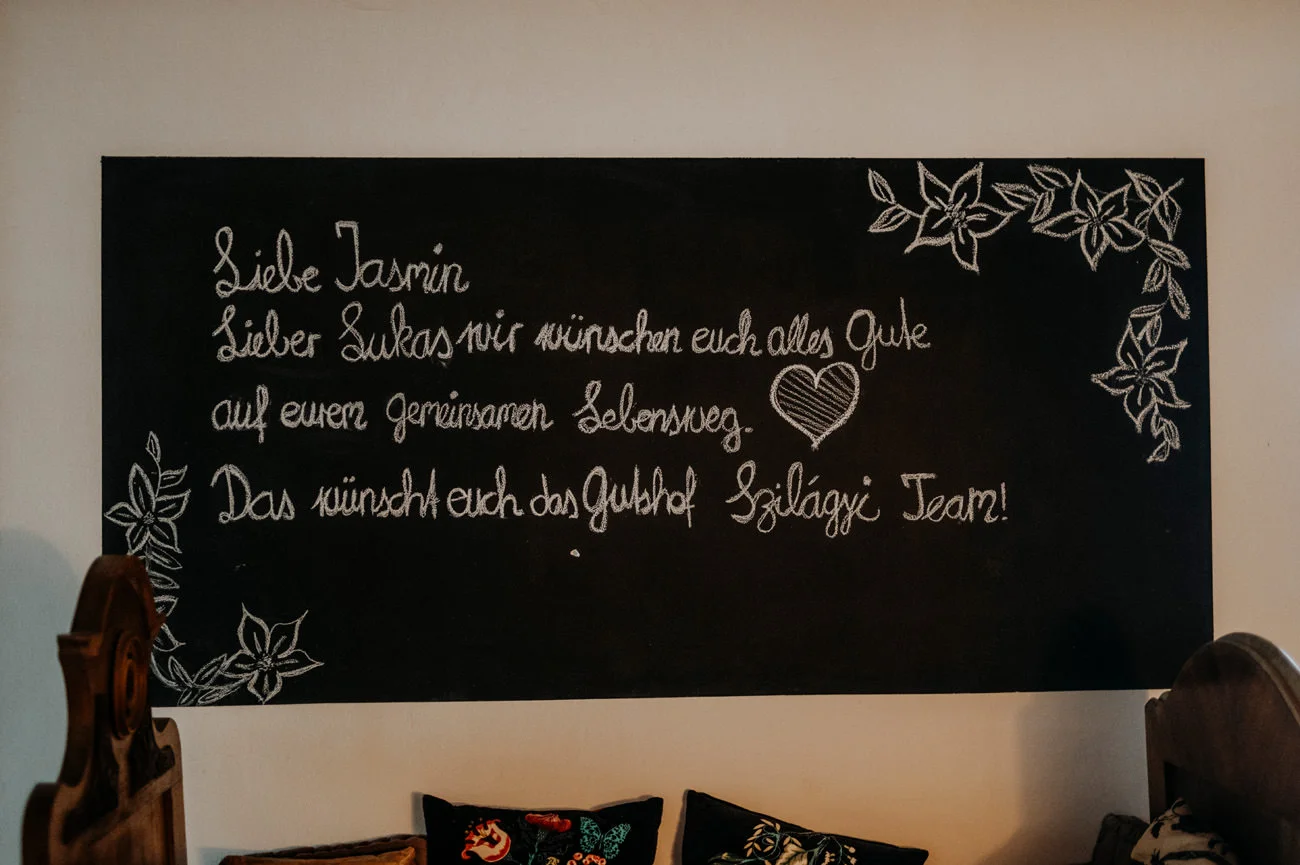 Liebe Jasmin
Lieber Lukas wir wünschen euch alles Gute
auf eurem gemeinsamen Lebensweg.
Das wünscht euch das Gutshof Szilágyi Team!